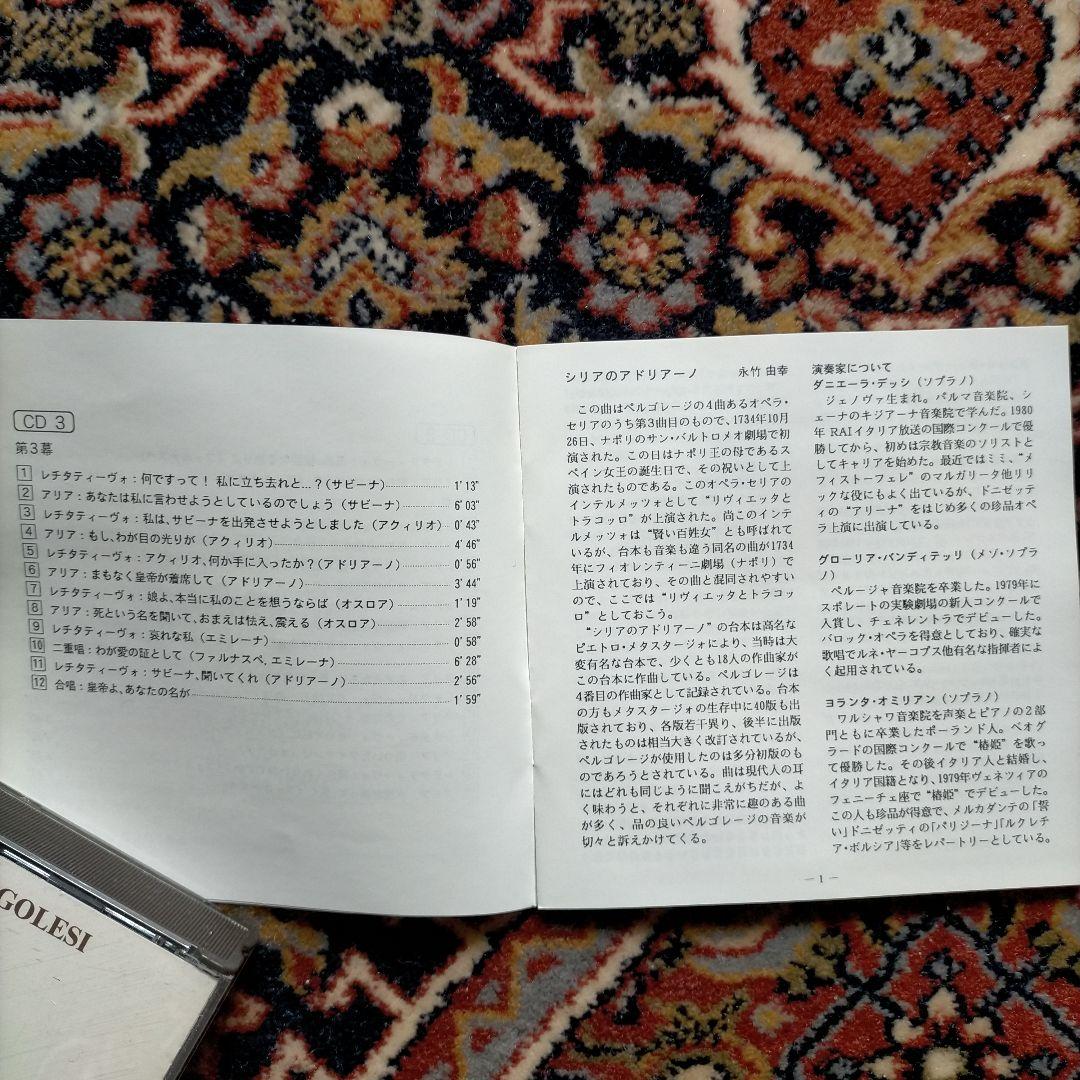 CD 3
第3幕
1 レチタティーヴォ:何ですって! 私に立ち去れと…?(サビーナ) 1′13″
2 アリア:あなたは私に言わせようとしているのでしょう(サビーナ) 6′03″
3 レチタティーヴォ:私は、サビーナを出発させようとしました(アクィリオ) 0′43″
4 アリア:もし、わが目の光りが(アクィリオ) 4′46″
5 レチタティーヴォ:アクィリオ、何か手に入ったか?(アドリアーノ) 0′56″
6 アリア:まもなく皇帝が着席して(アドリアーノ) 3′44″
7 レチタティーヴォ:娘よ、本当に私のことを想うならば(オスロア) 1′19″
8 アリア:死という名を聞いて、おまえは怯え、震える(オスロア) 2′58″
9 レチタティーヴォ:哀れな私(エミレーナ) 0′58″
10 二重唱:わが愛の証として(ファルナスペ、エミレーナ) 6′28″
11 レチタティーヴォ:サビーナ、聞いてくれ(アドリアーノ) 2′56″
12 合唱:皇帝よ、あなたの名が 1′59″
シリアのアドリアーノ 永竹 由幸
この曲はペルゴレージの4曲あるオペラ・
セリアのうち第3曲目のもので、1734年10月
26日、ナポリのサン・バルトロメオ劇場で初
演された。この日はナポリ王の母であるス
ペイン女王の誕生日で、その祝いとして上
演されたものである。このオペラ・セリアの
インテルメッツォとして“リヴィエッタと
トラコッロ”が上演された。尚このインテ
ルメッツォは“賢い百姓女”とも呼ばれて
いるが、台本も音楽も違う同名の曲が1734
年にフィオレンティーニ劇場(ナポリ)で
上演されており、その曲と混同されやすい
ので、ここでは“リヴィエッタとトラコッ
ロ”としておこう。
“シリアのアドリアーノ”の台本は高名な
ピエトロ・メタスタージォにより、当時は大
変有名な台本で、少くとも18人の作曲家が
この台本に作曲している。ペルゴレージは
4番目の作曲家として記録されている。台本
の方もメタスタージォの生存中に40版も出
版されており、各版若干異り、後半に出版
されたものは相当大きく改訂されているが、
ペルゴレージが使用したのは多分初版のも
のであろうとされている。曲は現代人の耳
にはどれも同じように聞こえがちだが、よ
く味わうと、それぞれに非常に趣のある曲
が多く、品の良いペルゴレージの音楽が
切々と訴えかけてくる。
演奏家について
ダニエーラ・デッシ(ソプラノ)
ジェノヴァ生まれ。パルマ音楽院、シ
ェーナのキジアーナ音楽院で学んだ。1980
年 RAIイタリア放送の国際コンクールで優
勝してから、初めは宗教音楽のソリストと
してキャリアを始めた。最近ではミミ、“メ
フィストーフェレ”のマルガリータ他リリ
ックな役にもよく出ているが、ドニゼッティ
の“アリーナ”をはじめ多くの珍品オペ
ラ上演に出演している。
グローリア・バンディテッリ(メゾ・ソプラ
ノ)
ペルージャ音楽院を卒業した。1979年に
スポレートの実験劇場の新人コンクールで
入賞し、チェネレントラでデビューした。
バロック・オペラを得意としており、確実な
歌唱でルネ・ヤーコプス他有名な指揮者によ
く起用されている。
ヨランタ・オミリアン(ソプラノ)
ワルシャワ音楽院を声楽とピアノの2部
門ともに卒業したポーランド人。ベオグ
ラードの国際コンクールで“椿姫”を歌っ
て優勝した。その後イタリア人と結婚し、
イタリア国籍となり、1979年ヴェネツィアの
フェニーチェ座で“椿姫”でデビューした。
この人も珍品が得意で、メルカダンテの「誓
い」ドニゼッティの「パリジーナ」「ルクレチ
ア・ボルシア」等をレパートリーとしている。
— 1 —
GOLESI